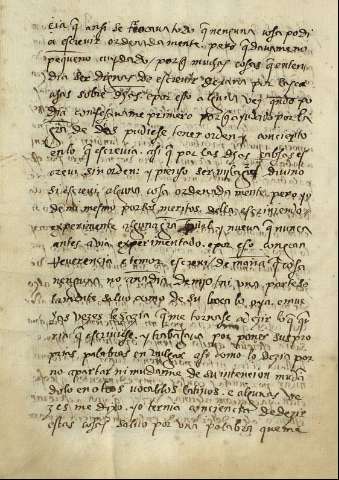 ria q̃ ansi se trocava todo q̃ nenguna cosa podi
a escreuir ordenadamente, pero q̃
pequeño cuydado porq̃ muchas cosas q̃ enten
dia ser dignas de escreuir dexaria por las
sobre dichas, e por eso alguna vez quando po
dia confesavame primero porq̃ ayudado por la
gracia de dios pudiese tener orden y concierto
en lo q̃ escreuia. asi q̃ por las dichas cabsas es
creui sin orden: y pienso ser milagro divino
si escreui alguna cosa ordenadamente, pero yo
de mi mesmo por los meritos della escriuiendo
experimente alguna gracia y nueva q̃ nunca
antes avia experimentado. e por eso con gran
reverencia e temor escreui de manera q̃ cosa
nenguna no añadia de mio, ni una parte so
lamente, salvo como de su boca lo oya. e mu
chas vezes le dezia q̃ me tornase a dezir lo q̃ que
ria q̃ escriuiese, y trabajava por poner sus pro
prias palabras en asi como lo dezia por
no apartar ni mudarme de su intencion
dolo en otros vocablos lativos. e algunas ve
zes me dixo. yo ternia conciencia de dezir
estas cosas salvo por una palabra que me